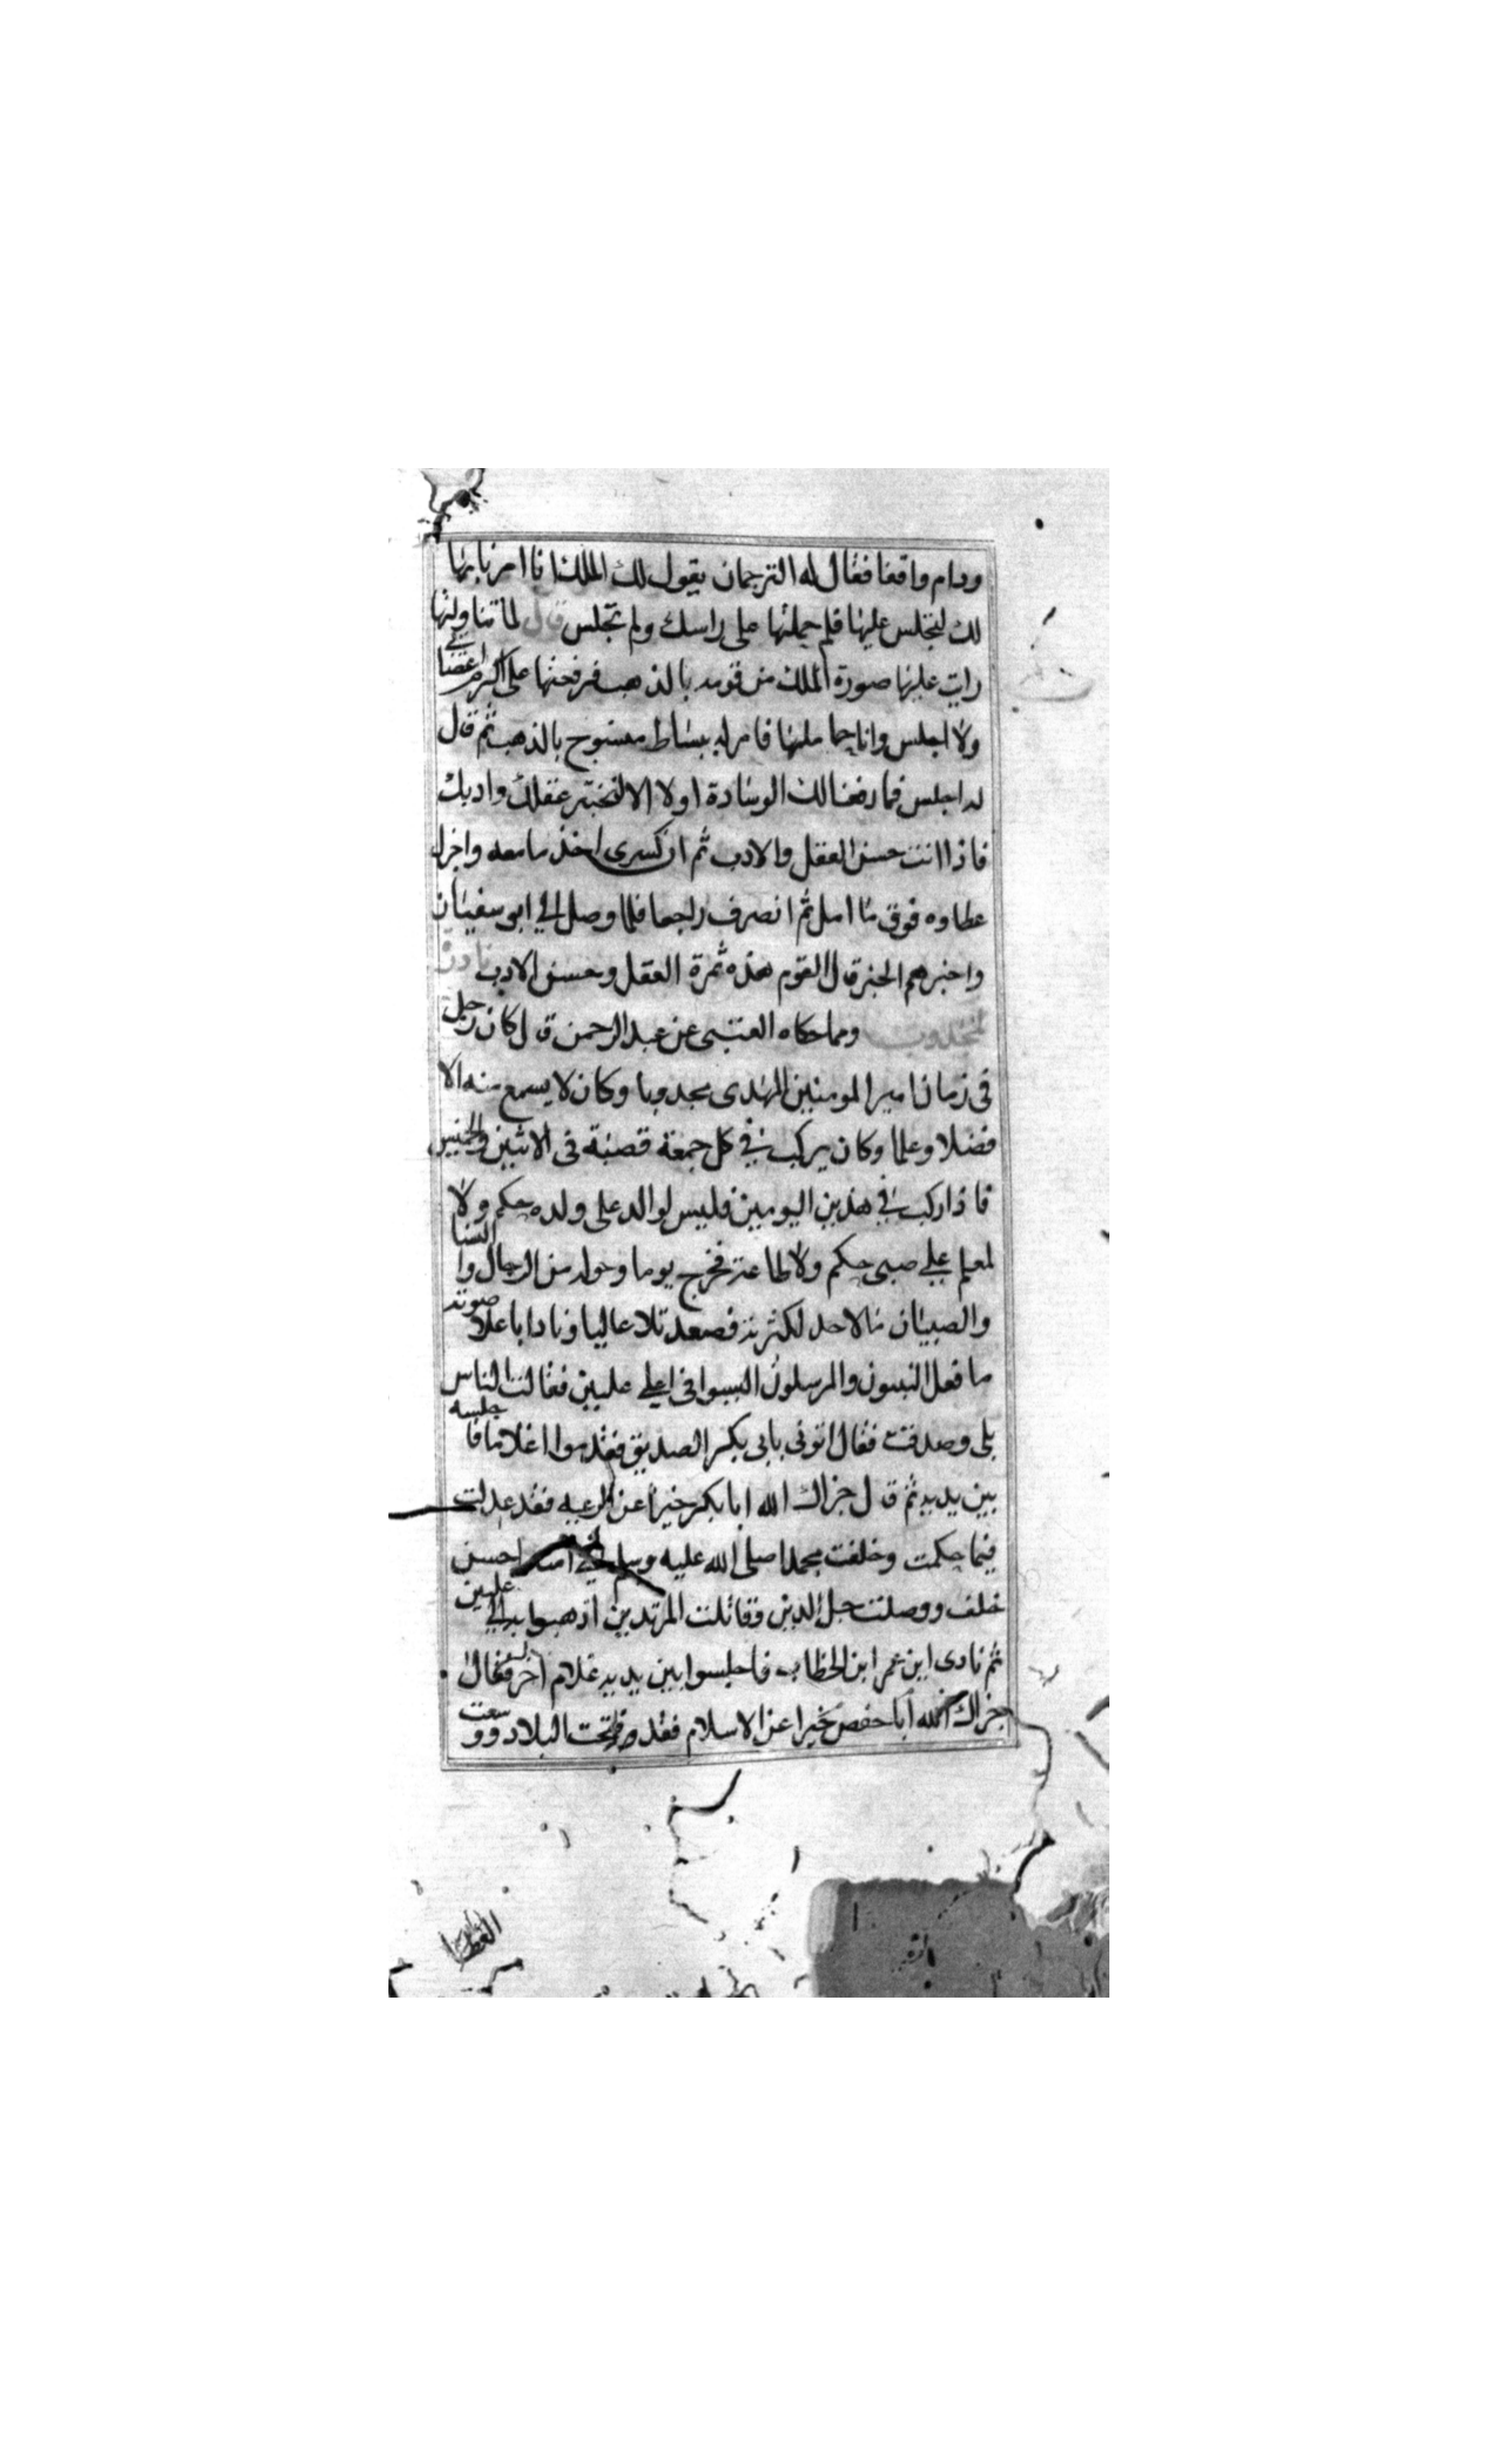 ودام واقفا فقال له الترجمان يقول لك الملك انا امرنا بها
لك لتجلس عليها فلم حملتها على راسك ولم تجلس قال لما تناولتها
رايت عليها صورة الملك من قومه بالذهب فرفعتها على اكرم اعضايي
ولا اجلس وانا حاملها فامر له ببساط منسوج بالذهب ثم قال
له اجلس فما دفعنا لك الوسادة اولا الا لنختبر عقلك وادبك
فاذا انت حسن العقل والادب ثم ان كسرى اخذ ما معه واجزل
عطاوه فوق ما امل ثم انصرف راجعا فلما وصل الي ابو سفيان
واخبرهم الخبر قال القوم هذه ثمرة العقل وحسن الادب نادرة
لمجدوب ومما حكاه العتبى عن عبد الرحمن قال كان رجل
في زمان امير المومنين المهدى مجدوبا وكان لا يسمع منه الا
فضلا وعلما وكان يركب في كل جمعة قصبة في الاثنين والخميس
فاذا ركب في هذين اليومين فليس لوالد على ولده حكم ولا
لمعلم علي صبي حكم ولا طاعة فخرج يوما وحوله من الرجال والنسا
والصبيان ما لا حد لكثرته فصعد تلا عاليا ونادا باعلا صوته
ما فعل النبيون والمرسلون اليسوا في اعلي عليين فقالت الناس
بلى وصدقت فقال اتوني بابي بكر الصديق فقدموا اغلاما فاجلسه
بين يديه ثم قال جزاك الله ابا بكر خيرا عن الرعيه فقد عدلت
فيما حكمت وخلفت محمدا صلى الله عليه وسلم في امته احسن
خلف ووصلت حبل الدين وقاتلت المرتدين اذهبوا به الي عليين
ثم نادى اين عمر ابن الخطاب فاجلسوا بين يديه غلام اخر فقال له
جزاك الله ابا حفص خيرا عن الاسلام فقد فتحت البلاد ووسعت